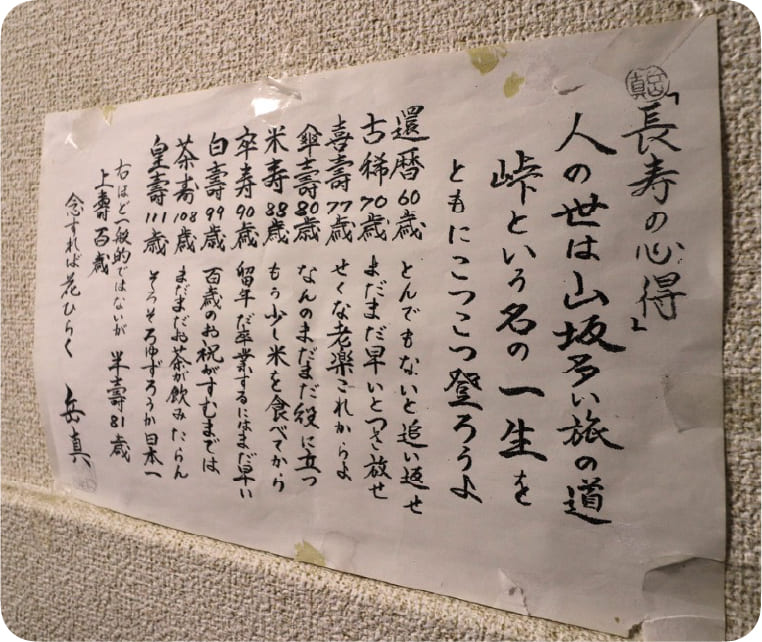 「長寿の心得」
人の世は山坂多い旅の道
峠という名の一生を
ともにこつこつ登ろうよ
還暦 60歳 とんでもないと追い返せ
古稀 70歳 まだまだ早いとつき放せ
喜壽 77歳 せくな老楽これからよ
傘壽 80歳 なんのまだまだ役に立つ
米寿 88歳 もう少し米を食べてから
卒寿 90歳 留年だ卒業するにはまだ早い
白壽 99歳 百歳のお祝がすむまでは
茶寿 108歳 まだまだお茶が飲みたらん
皇壽 111歳 そろそろゆずろうか日本一
右ほど一般的ではないが 半壽 81歳
上壽 百歳
念ずれば花ひらく 岳真